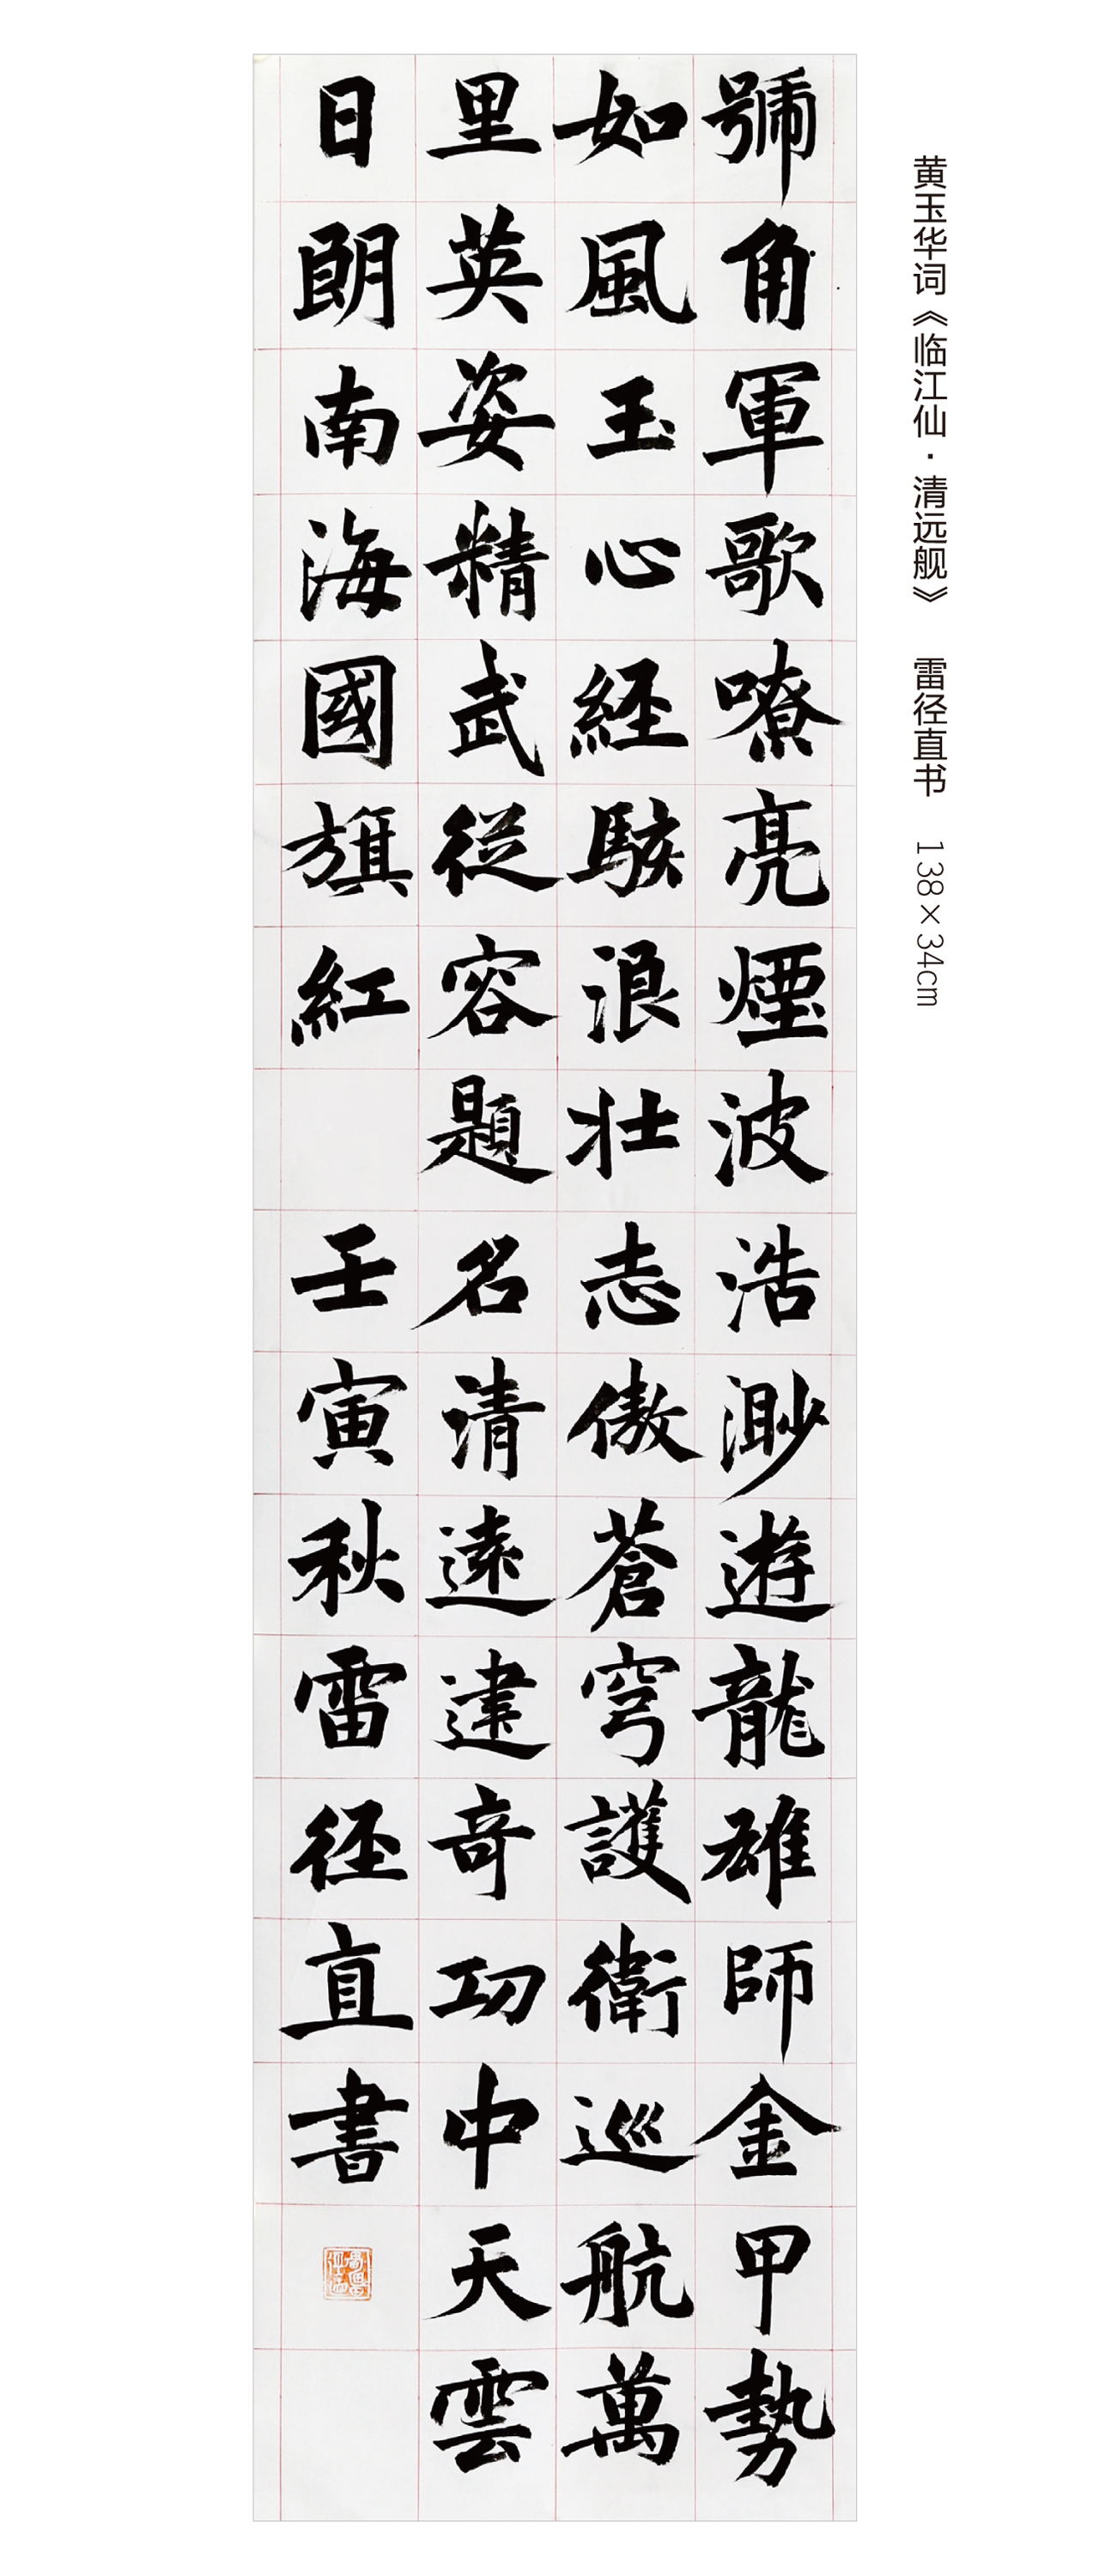 黄玉华词《临江仙·清远舰》 雷径直书 138×34cm
號角軍歌嘹亮煙波浩渺遊龍雄師金甲勢
如風玉心經駭浪壮志傲蒼穹護衛巡航萬
里英姿精武從容題名清遠建奇功中天雲
日朗南海國旗紅 壬寅秋雷径直書